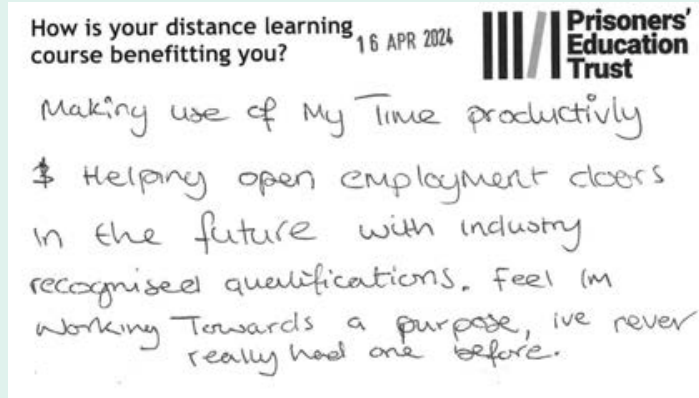 How is your distance learning
course benefitting you?
16 APR 2024
Prisoners'
Education
Trust
Making use of My Time productivly
& Helping open employment doors
in the future with industry
recognised qualifications. Feel im
Working Towards a purpose, ive never
really had one before.